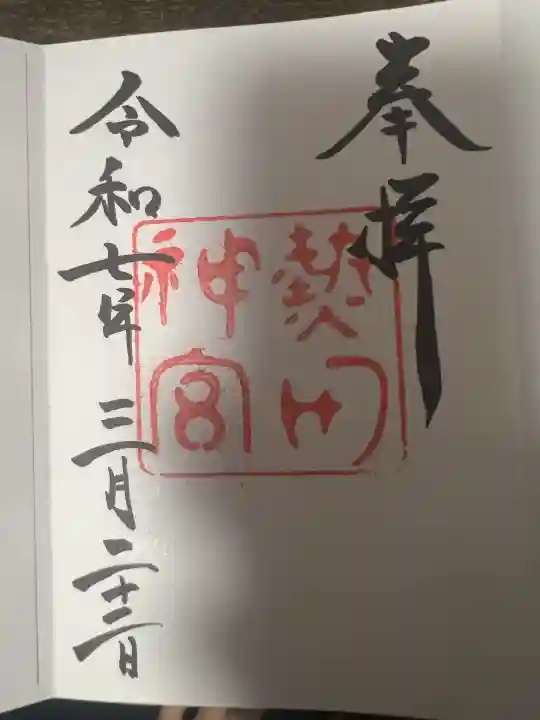 奉拝
熱田
神宮
令和七年 三月二十二日